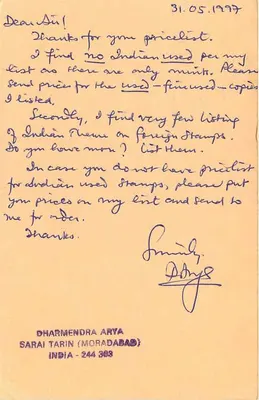 31.05.1997
Dear Sir!
Thanks for your pricelist.
I find no Indian used per my
list as there are only mints. Please
send price for the used - fine used - copies
I listed.
Secondly, I find very few listing
of Indian Theme on Foreign Stamps.
Do you have more? list them.
In case you do not have pricelist
for Indian used stamps, please put
your prices on my list and send to
me for order.
Thanks.
Sincerely,
DArya
DHARMENDRA ARYA
SARAI TARIN (MORADABAD)
INDIA - 244 303